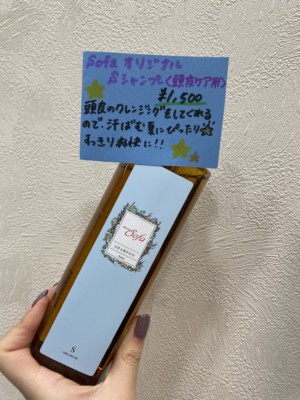 Sofa オリジナル
Sシャンプー(頭皮ケア用)
¥1,500
頭皮のクレンジングをしてくれる
ので、汗ばむ夏にぴったり
すっきり爽快に!!
Sofa
SHAMPOO
S